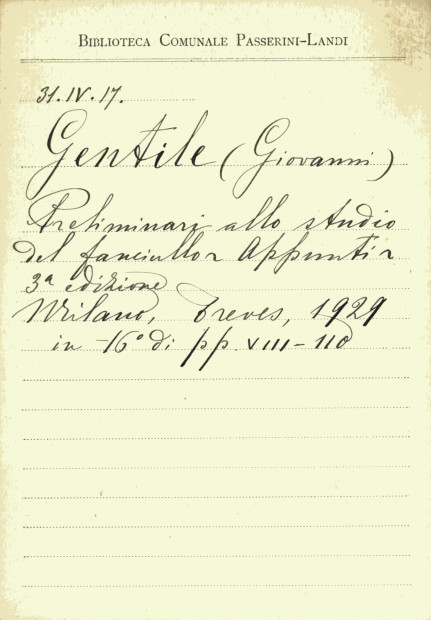 BIBLIOTECA COMUNALE PASSERINI-LANDI
31.IV.17.
Gentile (Giovanni)
Preliminari allo studio
del fanciullo Appunti
3ª edizione
Milano, Treves, 1929
in -16° di pp. VIII-110